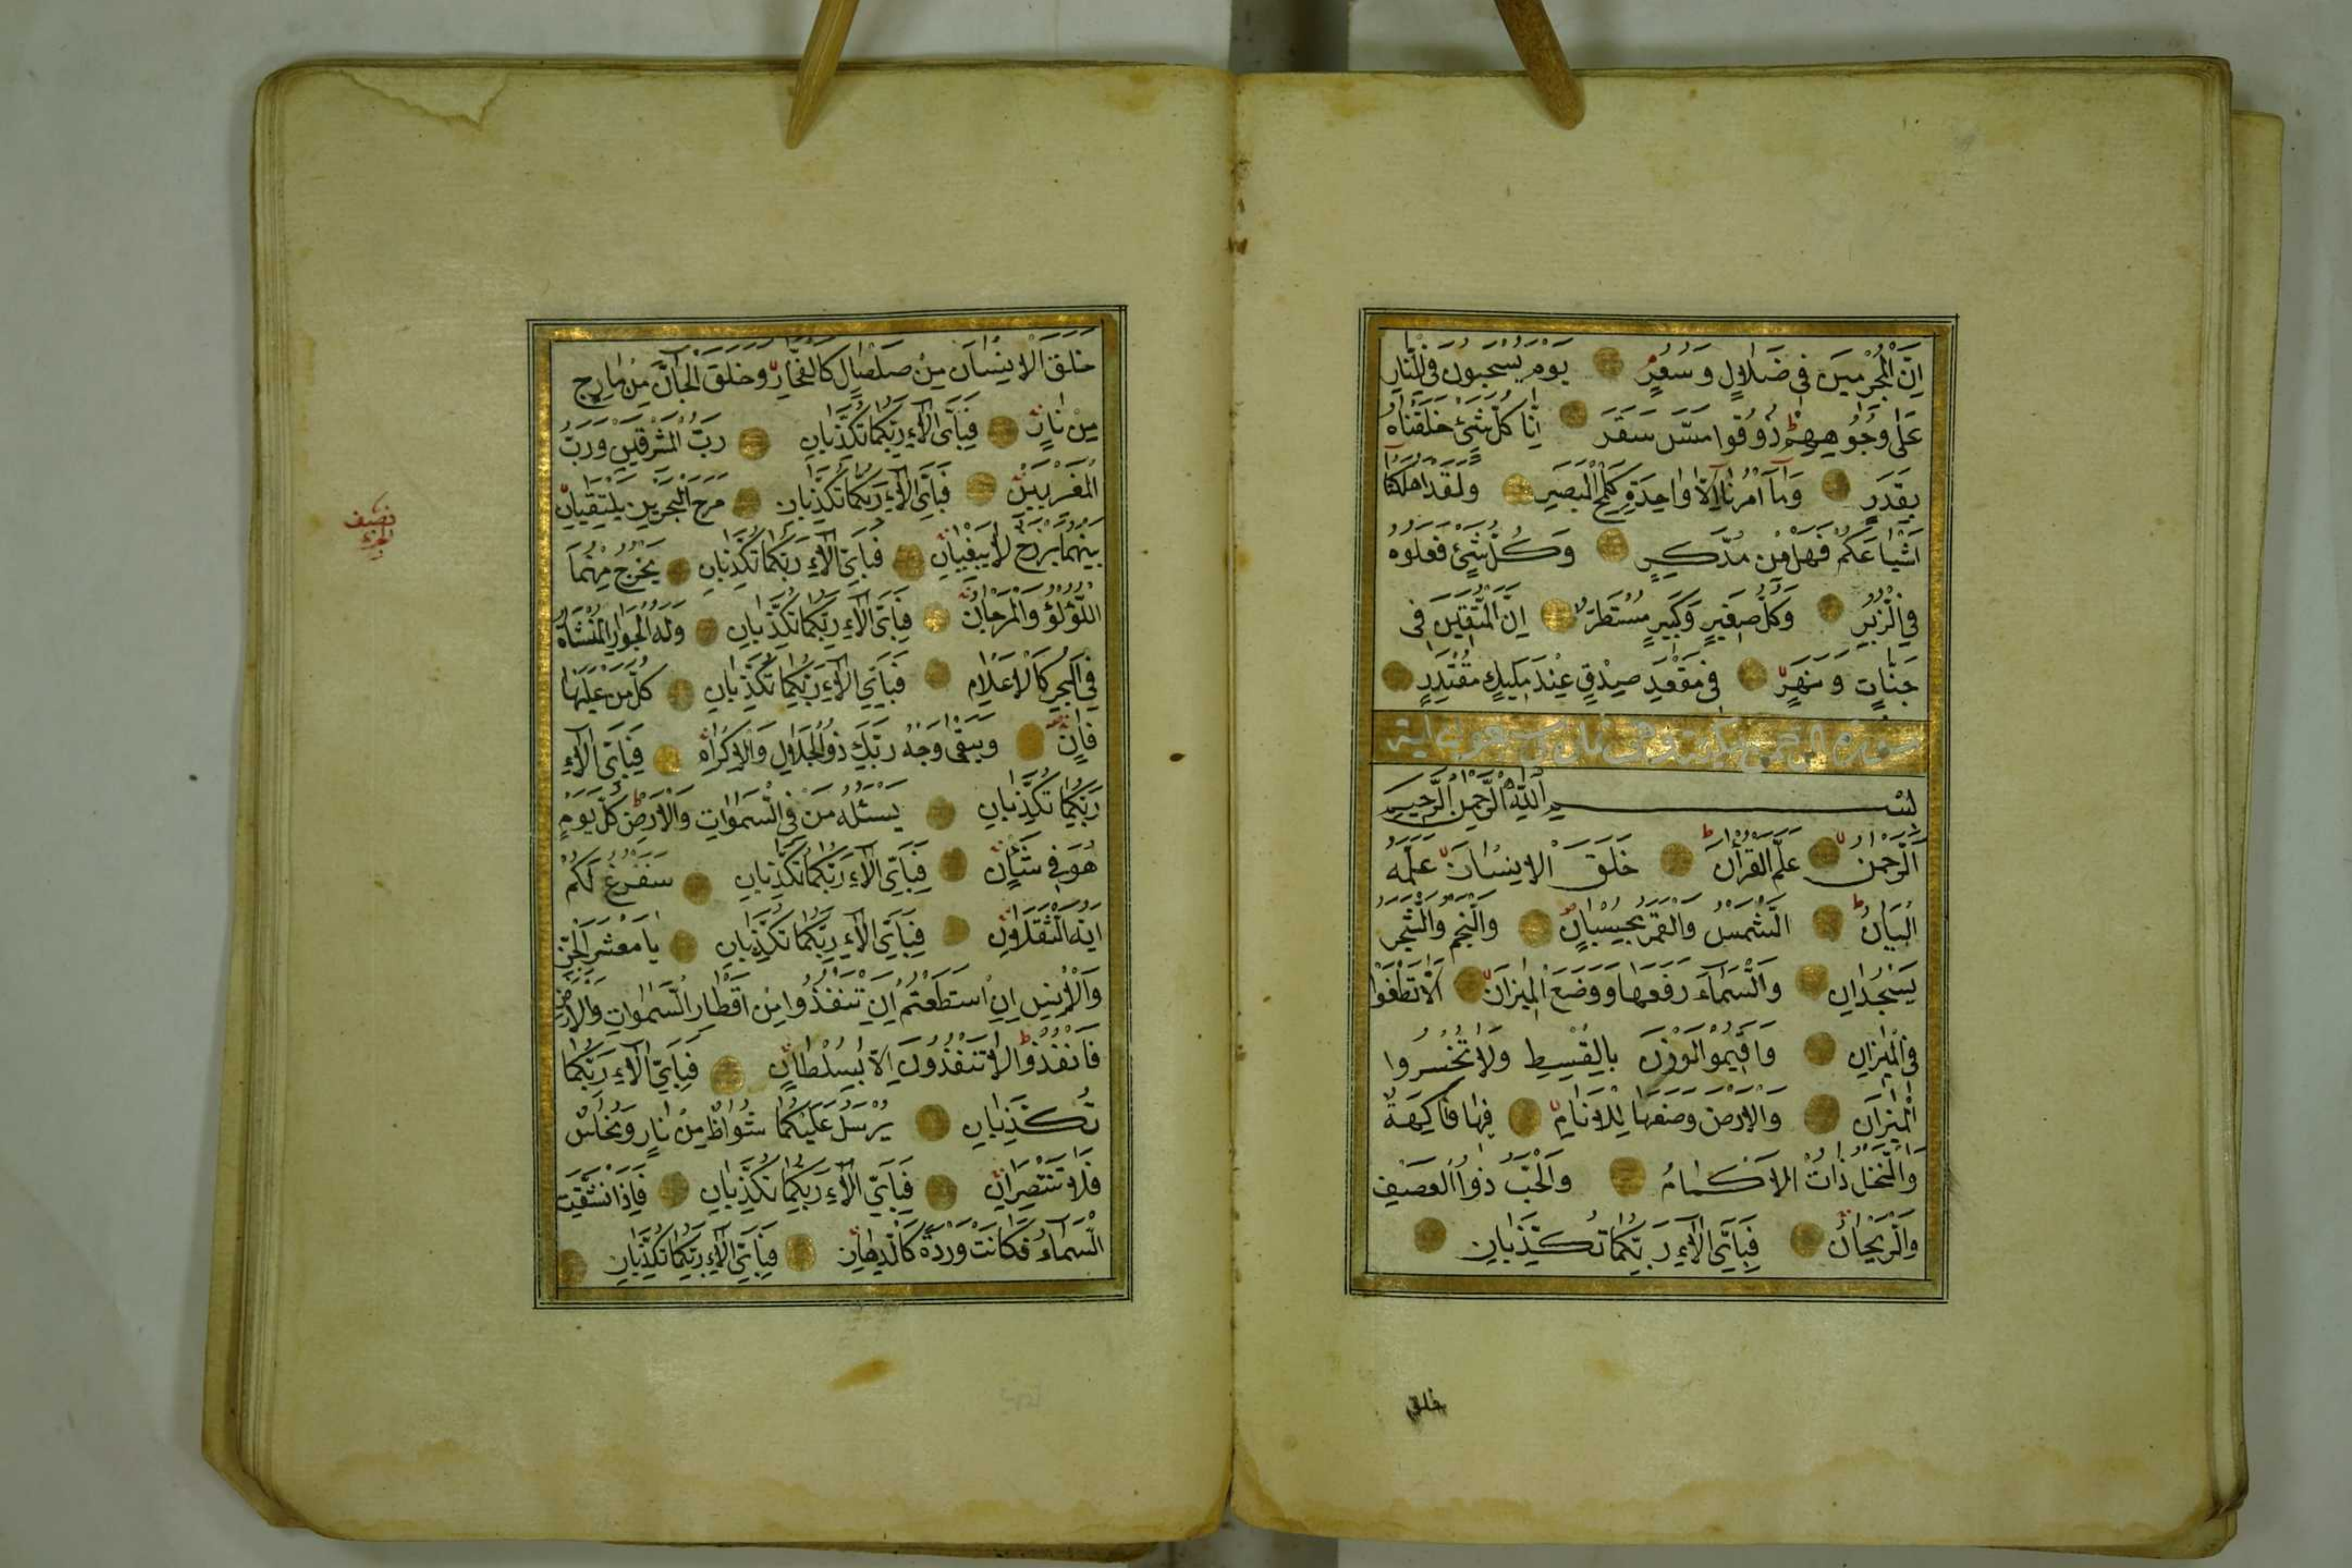 اِنَّ الْمُجْرِمينَ فى ضَلالٍ وَسُعُرٍ يَوْمَ يُسْحَبُونَ فِى النَّارِ
عَلٰى وُجُوهِهِمْ ذُوقُوا مَسَّ سَقَرَ اِنَّا كُلَّ شَىْءٍ خَلَقْنَاهُ
بِقَدَرٍ وَمَا اَمْرُنَا اِلَّا وَاحِدَةٌ كَلَمْحٍ بِالْبَصَرِ وَلَقَدْ اَهْلَكْنَا
اَشْيَاعَكُمْ فَهَلْ مِنْ مُدَّكِرٍ وَكُلُّ شَىْءٍ فَعَلُوهُ
فِى الزُّبُرِ وَكُلُّ صَغيرٍ وَكَبيرٍ مُسْتَطَرٌ اِنَّ الْمُتَّقينَ فى
جَنَّاتٍ وَنَهَرٍ فى مَقْعَدِ صِدْقٍ عِنْدَ مَليكٍ مُقْتَدِرٍ
سورة الرحمن مكية وهى ثمان وسبعون اية
بِسْمِ اللّٰهِ الرَّحْمٰنِ الرَّحيمِ
اَلرَّحْمٰنُ عَلَّمَ الْقُرْاٰنَ خَلَقَ الْاِنْسَانَ عَلَّمَهُ
الْبَيَانَ اَلشَّمْسُ وَالْقَمَرُ بِحُسْبَانٍ وَالنَّجْمُ وَالشَّجَرُ
يَسْجُدَانِ وَالسَّمَاءَ رَفَعَهَا وَوَضَعَ الْميزَانَ اَلَّا تَطْغَوْا
فِى الْميزَانِ وَاَقيمُوا الْوَزْنَ بِالْقِسْطِ وَلَا تُخْسِرُوا
الْميزَانَ وَالْاَرْضَ وَضَعَهَا لِلْاَنَامِ فيهَا فَاكِهَةٌ
وَالنَّخْلُ ذَاتُ الْاَكْمَامِ وَالْحَبُّ ذُوا الْعَصْفِ
وَالرَّيْحَانُ فَبِاَىِّ اٰلَاءِ رَبِّكُمَا تُكَذِّبَانِ
خلق
خَلَقَ الْاِنْسَانَ مِنْ صَلْصَالٍ كَالْفَخَّارِ وَخَلَقَ الْجَانَّ مِنْ مَارِجٍ
مِنْ نَارٍ فَبِاَىِّ اٰلَاءِ رَبِّكُمَا تُكَذِّبَانِ رَبُّ الْمَشْرِقَيْنِ وَرَبُّ
الْمَغْرِبَيْنِ فَبِاَىِّ اٰلَاءِ رَبِّكُمَا تُكَذِّبَانِ مَرَجَ الْبَحْرَيْنِ يَلْتَقِيَانِ
نصف
الجزء
بَيْنَهُمَا بَرْزَخٌ لَا يَبْغِيَانِ فَبِاَىِّ اٰلَاءِ رَبِّكُمَا تُكَذِّبَانِ يَخْرُجُ مِنْهُمَا
اللُّؤْلُؤُ وَالْمَرْجَانُ فَبِاَىِّ اٰلَاءِ رَبِّكُمَا تُكَذِّبَانِ وَلَهُ الْجَوَارِ الْمُنْشَاٰتُ
فِى الْبَحْرِ كَالْاَعْلَامِ فَبِاَىِّ اٰلَاءِ رَبِّكُمَا تُكَذِّبَانِ كُلُّ مَنْ عَلَيْهَا
فَانٍ وَيَبْقٰى وَجْهُ رَبِّكَ ذُو الْجَلَالِ وَالْاِكْرَامِ فَبِاَىِّ اٰلَاءِ
رَبِّكُمَا تُكَذِّبَانِ يَسْئَلُهُ مَنْ فِى السَّمٰوَاتِ وَالْاَرْضِ كُلَّ يَوْمٍ
هُوَ فى شَأْنٍ فَبِاَىِّ اٰلَاءِ رَبِّكُمَا تُكَذِّبَانِ سَنَفْرُغُ لَكُمْ
اَيُّهَ الثَّقَلَانِ فَبِاَىِّ اٰلَاءِ رَبِّكُمَا تُكَذِّبَانِ يَا مَعْشَرَ الْجِنِّ
وَالْاِنْسِ اِنِ اسْتَطَعْتُمْ اَنْ تَنْفُذُوا مِنْ اَقْطَارِ السَّمٰوَاتِ وَالْاَرْضِ
فَانْفُذُوا لَا تَنْفُذُونَ اِلَّا بِسُلْطَانٍ فَبِاَىِّ اٰلَاءِ رَبِّكُمَا
تُكَذِّبَانِ يُرْسَلُ عَلَيْكُمَا شُوَاظٌ مِنْ نَارٍ وَنُحَاسٌ
فَلَا تَنْتَصِرَانِ فَبِاَىِّ اٰلَاءِ رَبِّكُمَا تُكَذِّبَانِ فَاِذَا انْشَقَّتِ
السَّمَاءُ فَكَانَتْ وَرْدَةً كَالدِّهَانِ فَبِاَىِّ اٰلَاءِ رَبِّكُمَا تُكَذِّبَانِ